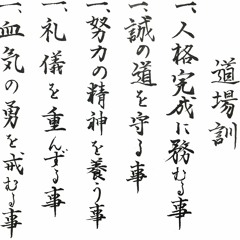 道場訓
一、人格完成に務むる事
一、誠の道を守る事
一、努力の精神を養う事
一、礼儀を重んずる事
一、血気の勇を戒むる事